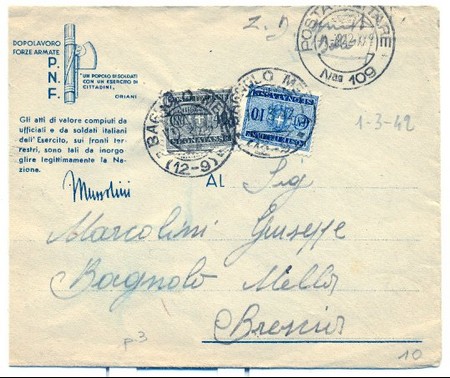 DOPOLAVORO
FORZE ARMATE
P.
N.
F.
"UN POPOLO DI SOLDATI
CON UN ESERCITO DI
CITTADINI„
ORIANI
Gli atti di valore compiuti da
ufficiali e da soldati italiani
dell'Esercito, sui fronti ter-
restri, sono tali da inorgo
glire legittimamente la Na-
zione.
Mussolini
POSTA MILITARE
N/ro 109
BAGNOLO MELLA
(12-9)
SEGNATASSE
10
1-3-42
Al Sig
Marcolini Giuseppe
Bagnolo Mella
Brescia
P3
10